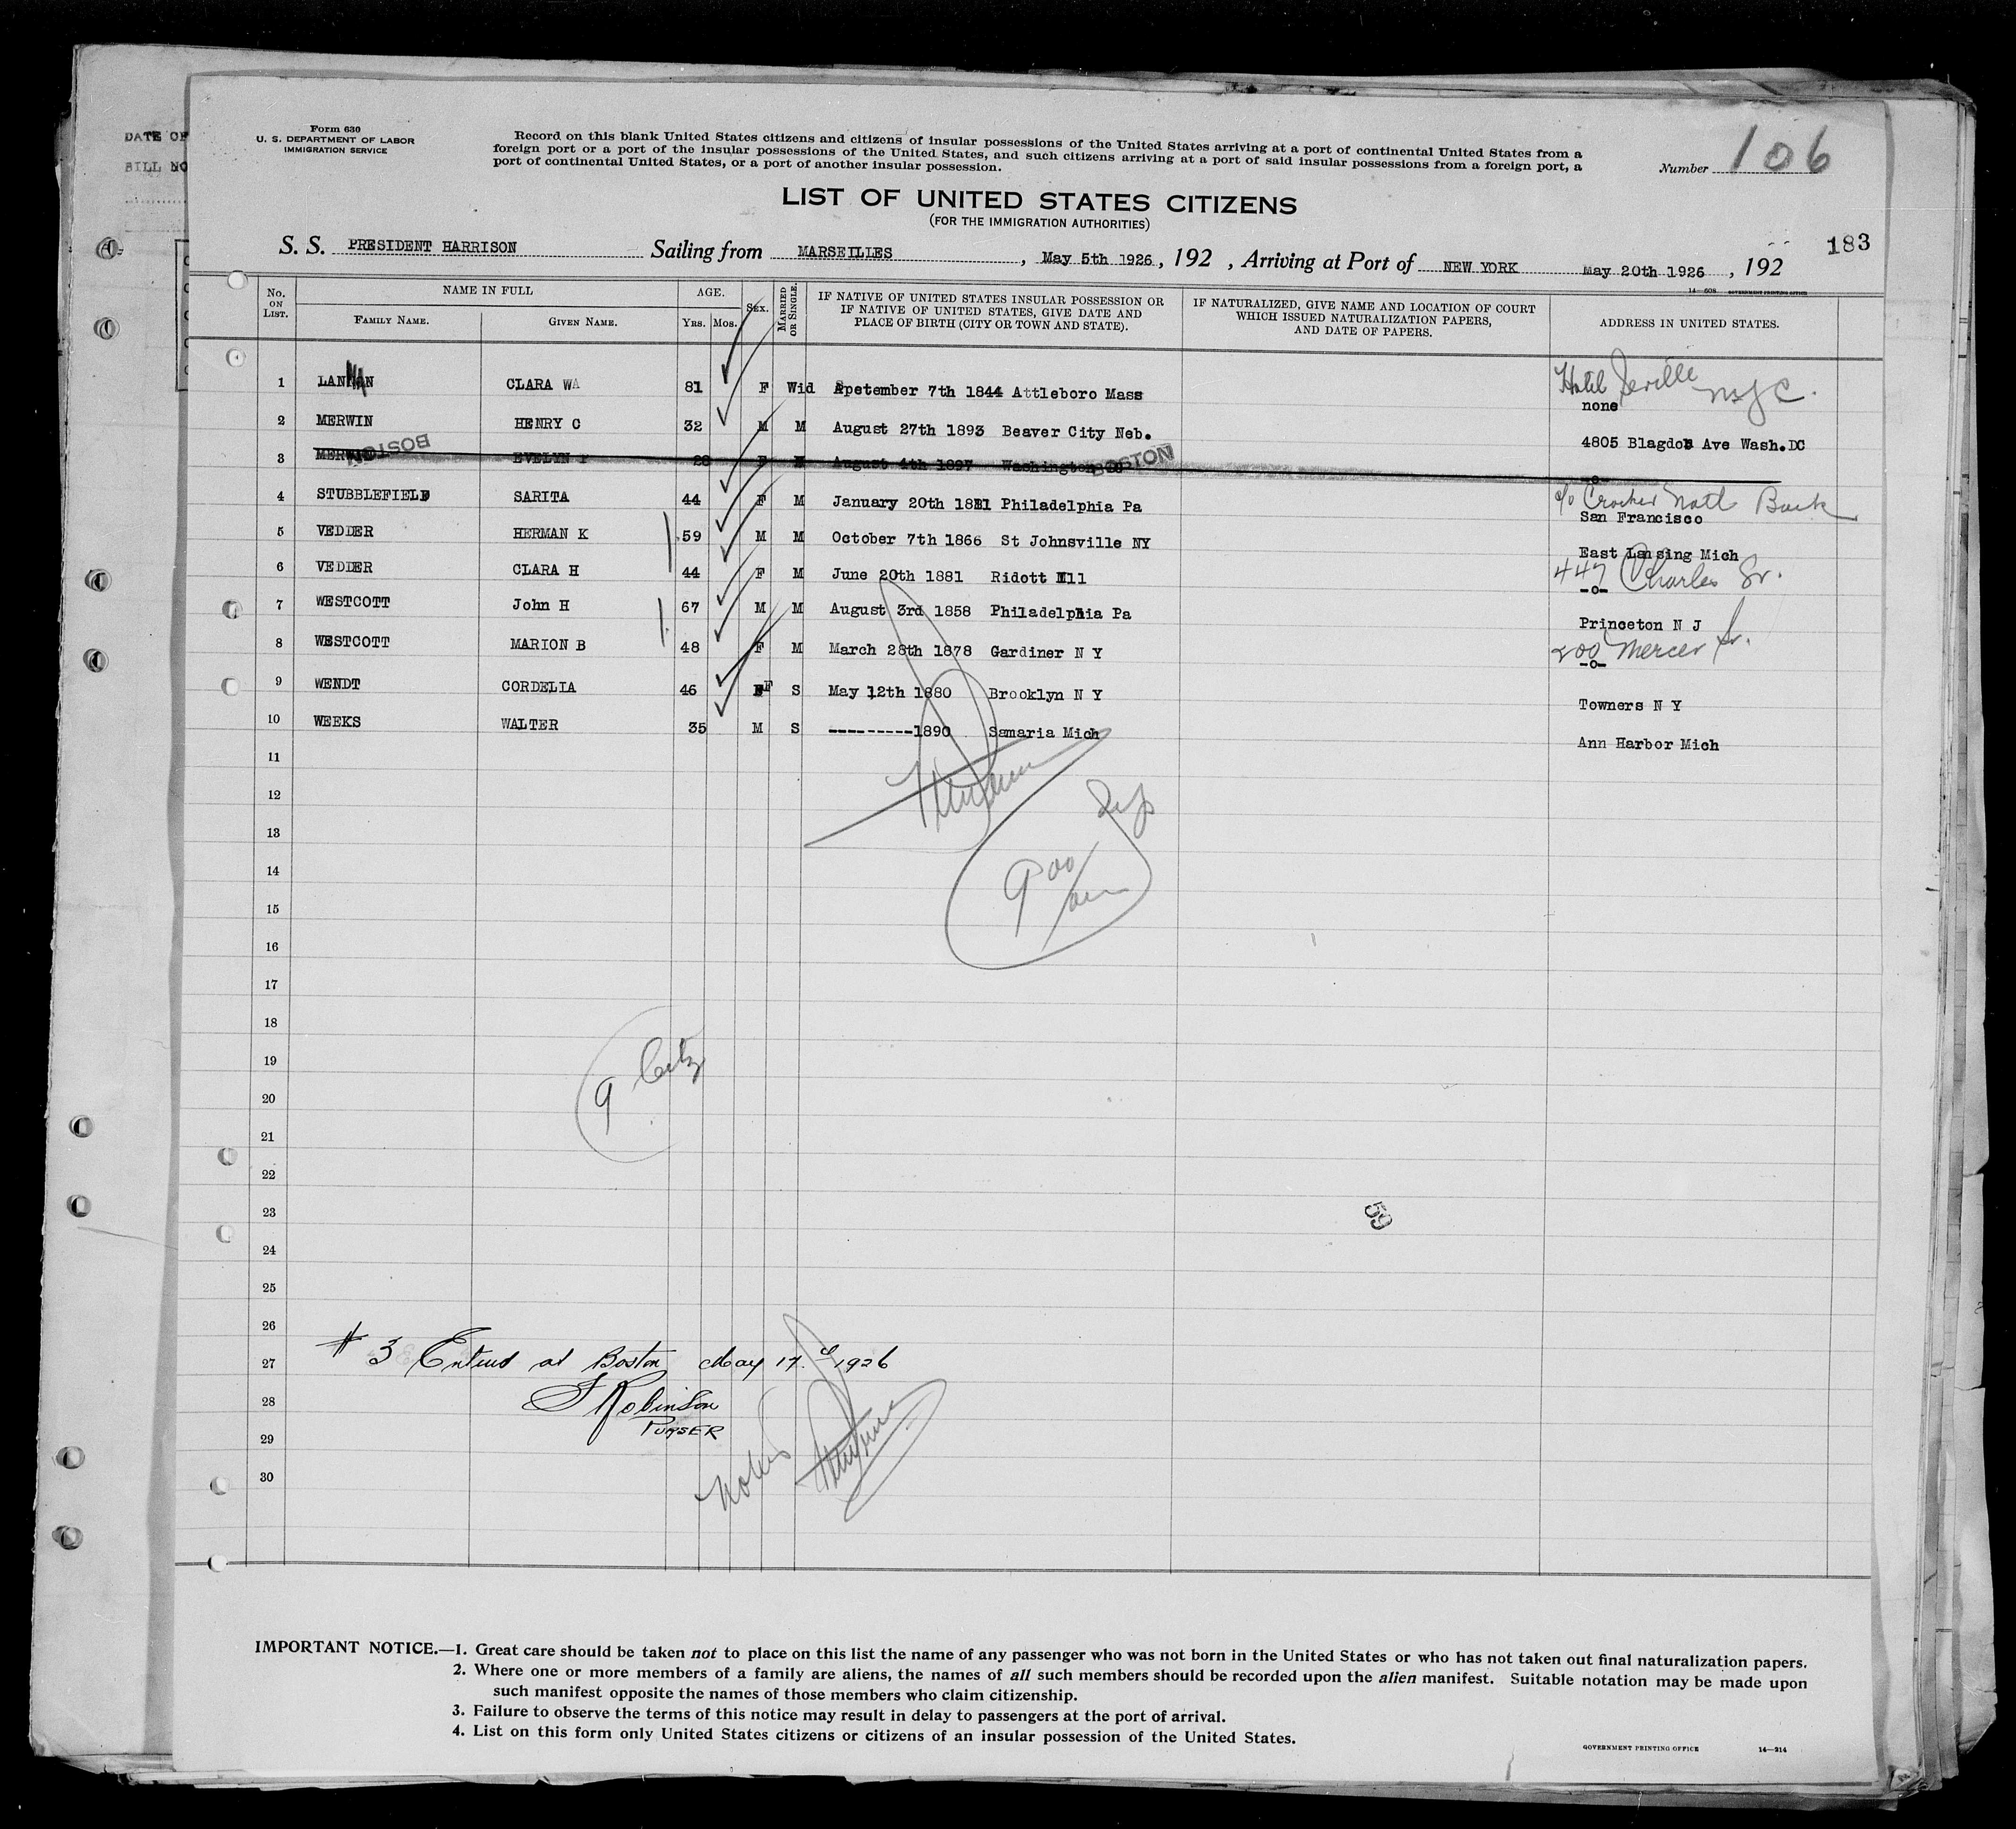 DATE OF
BILL NO
Form 630
U. S. DEPARTMENT OF LABOR
IMMIGRATION SERVICE
Record on this blank United States citizens and citizens of insular possessions of the United States arriving at a port of continental United States from a
foreign port or a port of the insular possessions of the United States, and such citizens arriving at a port of said insular possessions from a foreign port, a
port of continental United States, or a port of another insular possession.
Number 106
LIST OF UNITED STATES CITIZENS
(FOR THE IMMIGRATION AUTHORITIES)
183
S. S. PRESIDENT HARRISON Sailing from MARSEILLES , May 5th 1926 , 192 , Arriving at Port of NEW YORK May 20th 1926 , 192
14—608 GOVERNMENT PRINTING OFFICE
No. ON LIST. NAME IN FULL AGE. SEX. MARRIED OR SINGLE. IF NATIVE OF UNITED STATES INSULAR POSSESSION OR IF NATIVE OF UNITED STATES, GIVE DATE AND PLACE OF BIRTH (CITY OR TOWN AND STATE). IF NATURALIZED, GIVE NAME AND LOCATION OF COURT WHICH ISSUED NATURALIZATION PAPERS, AND DATE OF PAPERS. ADDRESS IN UNITED STATES.
FAMILY NAME. GIVEN NAME. YRS. MOS.
Hotel Seville NYC.
1 CLARA WA 81 F Wid Spetember 7th 1844 Attleboro Mass none
2 MERWIN HENRY C 32 M M August 27th 1893 Beaver City Neb. 4805 Blagdon Ave Wash.DC
BOSTON BOSTON
3 MERWIN EVELYN F 28 F M August 4th 1897 Washington DC -o-
c/o Crocker Natl Bank
4 STUBBLEFIELD SARITA 44 F M January 20th 1881 Philadelphia Pa San Francisco
5 VEDDER HERMAN K 59 M M October 7th 1866 St Johnsville NY East Lansing Mich
447 Charles St.
6 VEDDER CLARA H 44 F M June 20th 1881 Ridott Ill -o-
7 WESTCOTT John H 67 M M August 3rd 1858 Philadelphia Pa Princeton N J
200 Mercer St.
8 WESTCOTT MARION B 48 F M March 28th 1878 Gardiner N Y -o-
9 WENDT CORDELIA 46 F S May 12th 1880 Brooklyn N Y Towners N Y
10 WEEKS WALTER 35 M S ---------1890 Samaria Mich Ann Harbor Mich
11
12
13
14
9 00
15
16
17
18
19
9 Citz
20
21
22
23
59
24
25
26
27 # 3 Entered at Boston May 17.d 1926
28 F Robinson
29 PURSER
30
IMPORTANT NOTICE.—1. Great care should be taken not to place on this list the name of any passenger who was not born in the United States or who has not taken out final naturalization papers.
2. Where one or more members of a family are aliens, the names of all such members should be recorded upon the alien manifest. Suitable notation may be made upon
such manifest opposite the names of those members who claim citizenship.
3. Failure to observe the terms of this notice may result in delay to passengers at the port of arrival.
4. List on this form only United States citizens or citizens of an insular possession of the United States.
GOVERNMENT PRINTING OFFICE 14—214